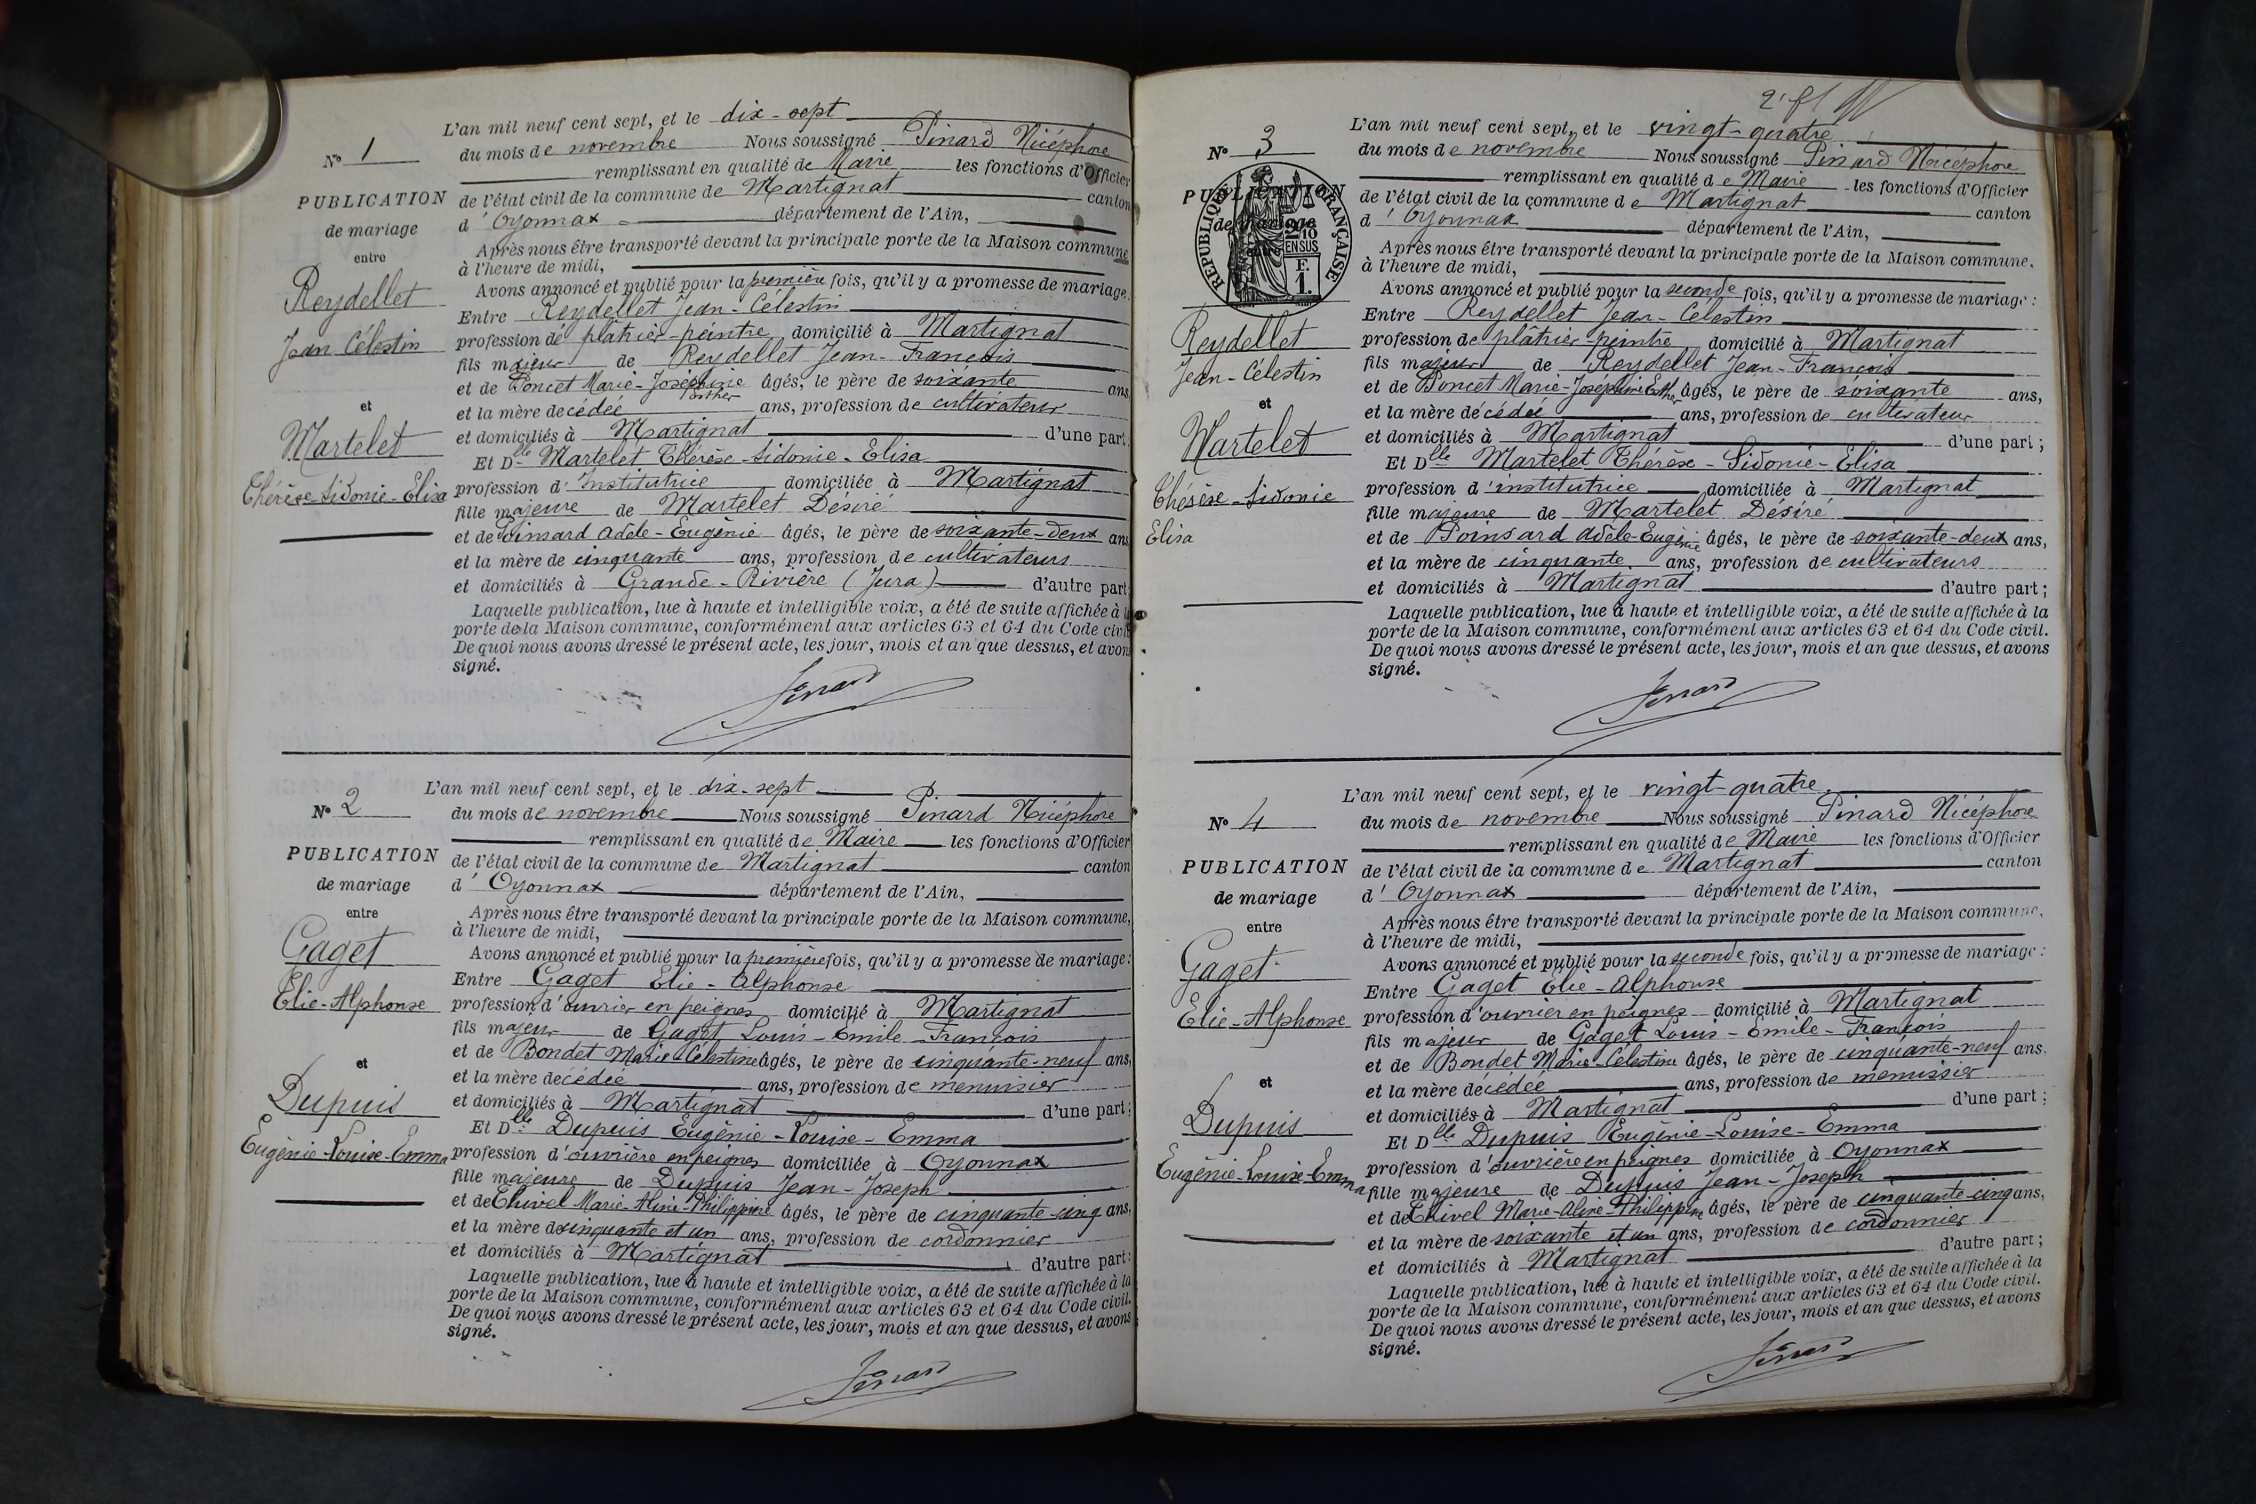 N° 1
PUBLICATION
de mariage
entre
Reydellet
Jean Célestin
et
Martelet
Thérèse-Sidonie-Elisa
L'an mil neuf cent sept, et le dix-sept
du mois de novembre Nous soussigné Pinard Nicéphore
remplissant en qualité de Maire les fonctions d'Officier
de l'état civil de la commune de Martignat canton
d'Oyonnax département de l'Ain,
Après nous être transporté devant la principale porte de la Maison commune,
à l'heure de midi,
Avons annoncé et publié pour la première fois, qu'il y a promesse de mariage:
Entre Reydellet Jean-Célestin
profession de plâtrier-peintre domicilié à Martignat
fils majeur de Reydellet Jean-François
et de Poncet Marie-Joséphine Esther âgés, le père de soixante ans,
et la mère décédée ans, profession de cultivateur
et domiciliés à Martignat d'une part;
Et Dlle Martelet Thérèse-Sidonie-Elisa
profession d'institutrice domiciliée à Martignat
fille majeure de Martelet Désiré
et de Poinsard Adèle-Eugénie âgés, le père de soixante-deux ans
et la mère de cinquante ans, profession de cultivateurs
et domiciliés à Grande-Rivière (Jura) d'autre part
Laquelle publication, lue à haute et intelligible voix, a été de suite affichée à la
porte de la Maison commune, conformément aux articles 63 et 64 du Code civil.
De quoi nous avons dressé le présent acte, les jour, mois et an que dessus, et avons
signé.
Pinard
N° 2
PUBLICATION
de mariage
entre
Gaget
Elie-Alphonse
et
Dupuis
Eugénie-Louise-Emma
L'an mil neuf cent sept, et le dix-sept
du mois de novembre Nous soussigné Pinard Nicéphore
remplissant en qualité de Maire les fonctions d'Officier
de l'état civil de la commune de Martignat canton
d'Oyonnax département de l'Ain,
Après nous être transporté devant la principale porte de la Maison commune,
à l'heure de midi,
Avons annoncé et publié pour la première fois, qu'il y a promesse de mariage:
Entre Gaget Elie-Alphonse
profession d'ouvrier en peignes domicilié à Martignat
fils majeur de Gaget Louis-Emile-François
et de Bondet Marie-Célestine âgés, le père de cinquante-neuf ans,
et la mère décédée ans, profession de menuisier
et domiciliés à Martignat d'une part;
Et Dlle Dupuis Eugénie-Louise-Emma
profession d'ouvrière en peignes domiciliée à Oyonnax
fille majeure de Dupuis Jean-Joseph
et de Chivel Marie-Aline-Philippine âgés, le père de cinquante-cinq ans,
et la mère de cinquante et un ans, profession de cordonnier
et domiciliés à Martignat d'autre part:
Laquelle publication, lue à haute et intelligible voix, a été de suite affichée à la
porte de la Maison commune, conformément aux articles 63 et 64 du Code civil.
De quoi nous avons dressé le présent acte, les jour, mois et an que dessus, et avons
signé.
Pinard
N° 3
PUBLICATION
de mariage
entre
RÉPUBLIQUE FRANÇAISE
2/10
EN SUS
F.
1.
Reydellet
Jean-Célestin
et
Martelet
Thérèse-Sidonie
Elisa
L'an mil neuf cent sept, et le vingt-quatre
du mois de novembre Nous soussigné Pinard Nicéphore
remplissant en qualité de Maire les fonctions d'Officier
de l'état civil de la commune de Martignat canton
d'Oyonnax département de l'Ain,
Après nous être transporté devant la principale porte de la Maison commune,
à l'heure de midi,
Avons annoncé et publié pour la seconde fois, qu'il y a promesse de mariage:
Entre Reydellet Jean-Célestin
profession de plâtrier-peintre domicilié à Martignat
fils majeur de Reydellet Jean-François
et de Poncet Marie-Joséphine Esther âgés, le père de soixante ans,
et la mère décédée ans, profession de cultivateur
et domiciliés à Martignat d'une part;
Et Dlle Martelet Thérèse-Sidonie-Elisa
profession d'institutrice domiciliée à Martignat
fille majeure de Martelet Désiré
et de Poinsard Adèle-Eugénie âgés, le père de soixante-deux ans,
et la mère de cinquante ans, profession de cultivateurs
et domiciliés à Martignat d'autre part;
Laquelle publication, lue à haute et intelligible voix, a été de suite affichée à la
porte de la Maison commune, conformément aux articles 63 et 64 du Code civil.
De quoi nous avons dressé le présent acte, les jour, mois et an que dessus, et avons
signé.
Pinard
N° 4
PUBLICATION
de mariage
entre
Gaget
Elie-Alphonse
et
Dupuis
Eugénie-Louise-Emma
L'an mil neuf cent sept, et le vingt-quatre
du mois de novembre Nous soussigné Pinard Nicéphore
remplissant en qualité de Maire les fonctions d'Officier
de l'état civil de la commune de Martignat canton
d'Oyonnax département de l'Ain,
Après nous être transporté devant la principale porte de la Maison commune,
à l'heure de midi,
Avons annoncé et publié pour la seconde fois, qu'il y a promesse de mariage:
Entre Gaget Elie-Alphonse
profession d'ouvrier en peignes domicilié à Martignat
fils majeur de Gaget Louis-Emile-François
et de Bondet Marie-Célestine âgés, le père de cinquante-neuf ans.
et la mère décédée ans, profession de menuisier
et domiciliés à Martignat d'une part;
Et Dlle Dupuis Eugénie-Louise-Emma
profession d'ouvrière en peignes domiciliée à Oyonnax
fille majeure de Dupuis Jean-Joseph
et de Chivel Marie-Aline-Philippine âgés, le père de cinquante-cinq ans,
et la mère de soixante et un ans, profession de cordonnier
et domiciliés à Martignat d'autre part;
Laquelle publication, lue à haute et intelligible voix, a été de suite affichée à la
porte de la Maison commune, conformément aux articles 63 et 64 du Code civil.
De quoi nous avons dressé le présent acte, les jour, mois et an que dessus, et avons
signé.
Pinard